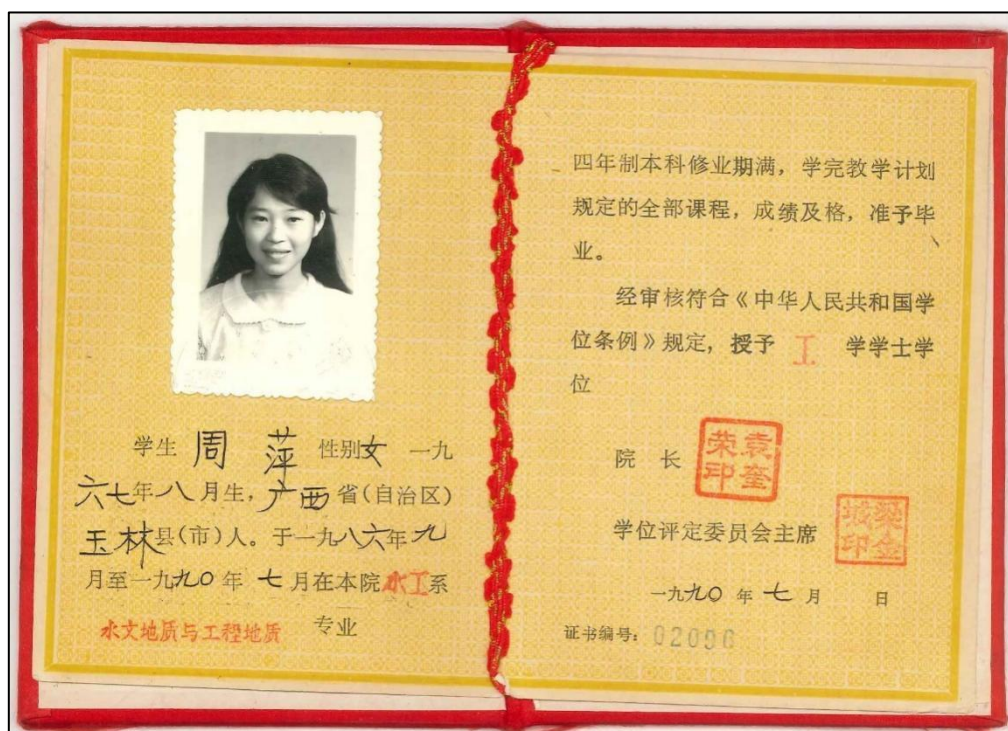 学生 周萍 性别女 一九
六七年八月生，广西省(自治区)
玉林县(市)人。于一九八六年九
月至一九九〇年七月在本院水工系
水文地质与工程地质 专业
四年制本科修业期满，学完教学计划
规定的全部课程，成绩及格，准予毕
业。
经审核符合《中华人民共和国学
位条例》规定，授予 工 学学士学
位
院长 袁奎荣印
学位评定委员会主席 梁金城印
一九九〇年七月 日
证书编号：02096